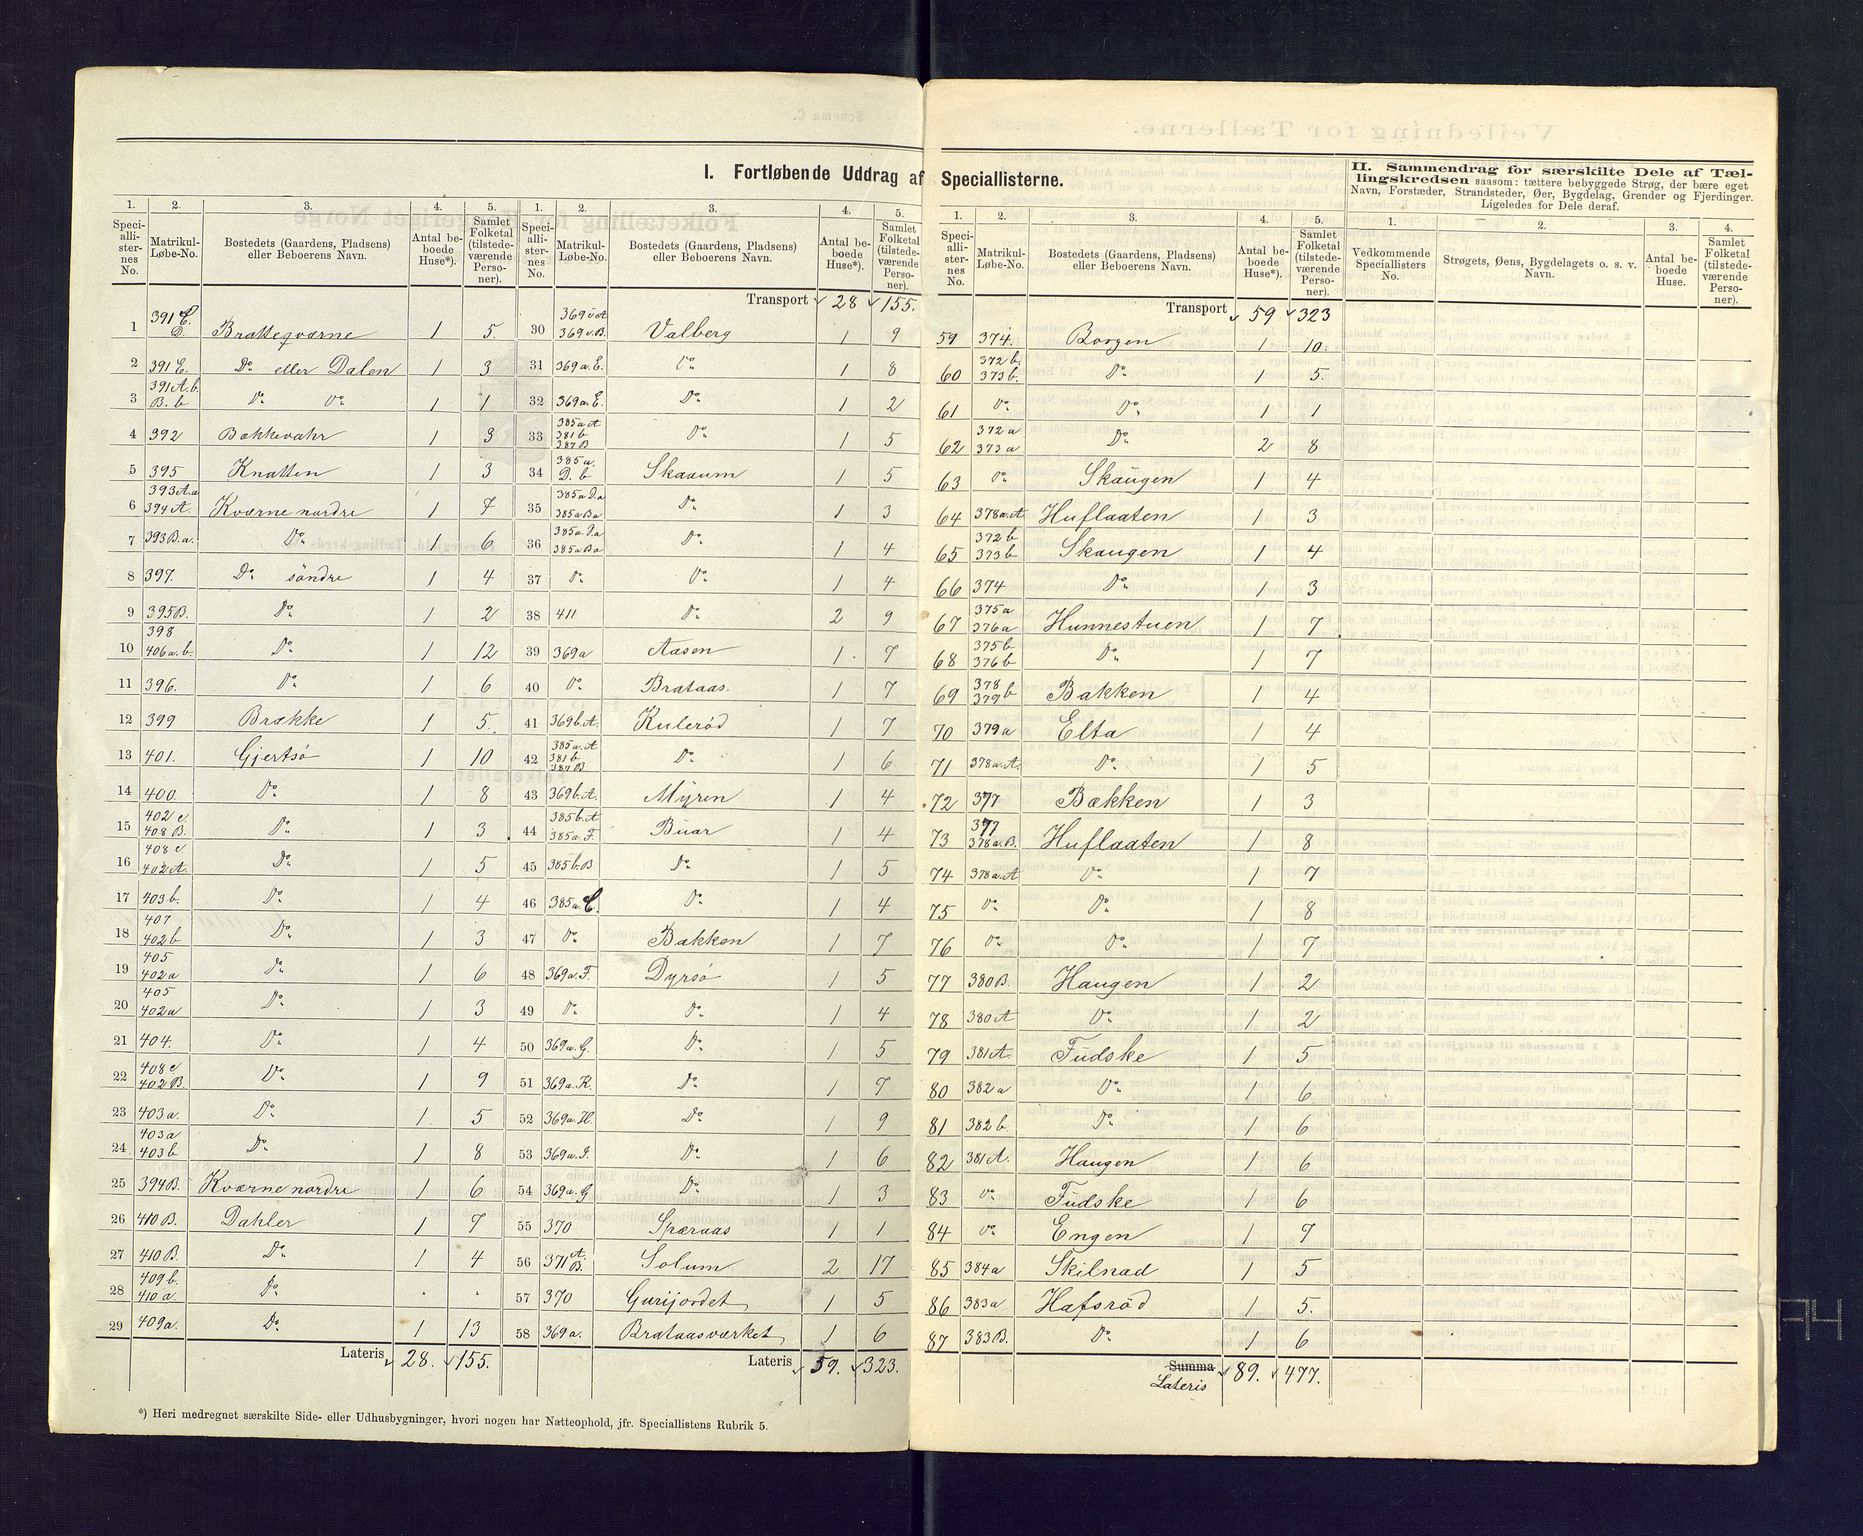 I. Fortløbende Uddrag af Speciallisterne.
1. 2. 3. 4. 5.
Speciallisternes No. Matrikul-Løbe-No. Bostedets (Gaardens, Pladsens) eller Beboerens Navn. Antal beboede Huse*). Samlet Folketal (tilstedeværende Personer).
1 391 C. D. Brattequærne 1 5.
2 391 E. Do eller Dalen 1 3
3 391 A.b. B.b Do Do 1 1
4 392 Bakkevahr 1 3
5 395 Knatten 1 3
6 393 A.a 394 A. Kværne nordre 1 7
7 393 B.a. Do 1 6
8 397. Do søndre 1 4
9 395 B. Do 1 2
10 398 406 a.b. Do 1 12
11 396. Do 1 6
12 399 Brække 1 5.
13 401. Gjertsø 1 10
14 400. Do 1 8
15 402 c. 408 B. Do 1 3
16 408 c. 402 A. Do 1 5
17 403 b. Do 1 4
18 407 402 b Do 1 3
19 405 402 a Do 1 6
20 405 402 a Do 1 3
21 404. Do 1 4
22 408 c 402 B. Do 1 9
23 403 a. Do 1 5
24 403 a 403 b Do 1 8
25 394 B. Kværne nordre 1 6
26 410 B. Dahler 1 7
27 410 B. Do 1 4
28 409 b. 410 a. Do " "
29 409 a. Do 1 13
Lateris 28. 155.
1. 2. 3. 4. 5.
Speciallisternes No. Matrikul-Løbe-No. Bostedets (Gaardens, Pladsens) eller Beboerens Navn. Antal beboede Huse*). Samlet Folketal (tilstedeværende Personer).
Transport 28 155.
30 369 A 369 B. Valberg 1 9
31 369 a. E. Do 1 8
32 369 a. E. Do 1 2
33 385 a. A 381 b 387 B Do 1 5
34 385 a. D. b Skaaum 1 5
35 385 a D.a 385 a Ba Do 1 3
36 385 a. D.a 385 a Ba Do 1 4
37 Do Do 1 4
38 411 Do 2 9
39 369 a Aasen 1 7
40 Do Brataas. 1 7
41 369 b. A. Kulerød 1 7
42 385 a. A 381 b 387 B Do 1 6
43 369 b. A. Myren 1 4
44 385 b. A 385 a. F. Buar 1 4
45 385 b. B Do 1 5
46 385 a. C. Do 1 4
47 Do Bakken 1 7
48 369 a. F. Dyrsø 1 5
49 Do Do 1 4
50 369 a. G. Do 1 5
51 369 a. K. Do 1 7
52 369 a. H. Do 1 9
53 369 a. I. Do 1 6
54 369 a. G Do 1 3
55 370 Spæraas 1 1
56 371 A. B. Solum 2 17
57 370 Gurijordet 1 5
58 369 a. Brataasværket 1 6
Lateris 59. 323.
*) Heri medregnet særskilte Side- eller Udhusbygninger, hvori nogen har Natteophold, jfr. Speciallistens Rubrik 5.
1. 2. 3. 4. 5.
Speciallisternes No. Matrikul-Løbe-No. Bostedets (Gaardens, Pladsens) eller Beboerens Navn. Antal beboede Huse*). Samlet Folketal (tilstedeværende Personer).
Transport 59 323
59 374. Borgen 1 10.
60 372 b. 373 b. Do 1 5.
61 Do Do 1 1
62 372 a 373 a Do 2 8
63 Do Skaugen 1 4
64 378 a. A Huflaaten 1 3
65 372 b 373 b Skaugen 1 4
66 374 Do 1 3
67 375 a 376 a Hunnestuen 1 7
68 375 b 376 b Do 1 7
69 378 379 b Bakken 1 4
70 379 a Elta 1 4
71 378 a. A. Do 1 5
72 377 Bækken 1 3
73 377 378 a. B. Huflaaten 1 8
74 378 a. A Do 1 7
75 Do Do 1 8
76 Do Do 1 7
77 380 B. Haugen 1 2
78 380 A Do 1 2
79 381 A. Fudske 1 5
80 382 a Do 1 6
81 382 b Do 1 6
82 381 A. Haugen 1 6
83 Do Fudske 1 6
84 Do Engen 1 7
85 384 a Skilnad 1 5
86 383 a Hafsrød 1 5.
87 383 B. Do 1 6
Summa
Lateris 89. 477.
II. Sammendrag for særskilte Dele af Tællingskredsen saasom: tættere bebyggede Strøg, der bære eget Navn, Forstæder, Strandsteder, Øer, Bygdelag, Grender og Fjerdinger. Ligeledes for Dele deraf.
1. 2. 3. 4.
Vedkommende Speciallisters No. Strøgets, Øens, Bygdelagets o. s. v. Navn. Antal beboede Huse. Samlet Folketal (tilstedeværende Personer).